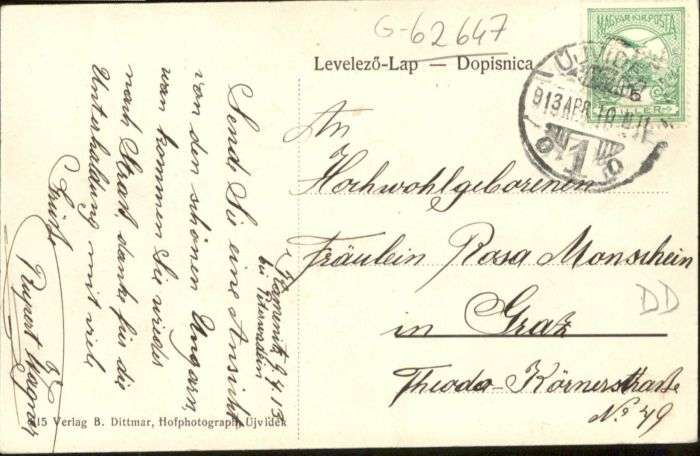 G-62647
Levelező-Lap — Dopisnica
MAGYAR KIR. POSTA
913 APR. 10
1
An
Hochwohlgeborenen
Fräulein Rosa Monschein
in Graz
Theodor Körnerstrasse
No 49
DD
9 4 13
bei Peterwardein
Sende Sie eine Ansicht
von den schönen Ungarn
wan kommen Sie wieder
nach Strat danke für die
Unterhaltung mit viele
Grüße
Rupert Wagner
Verlag B. Dittmar, Hofphotograph Ujvidék